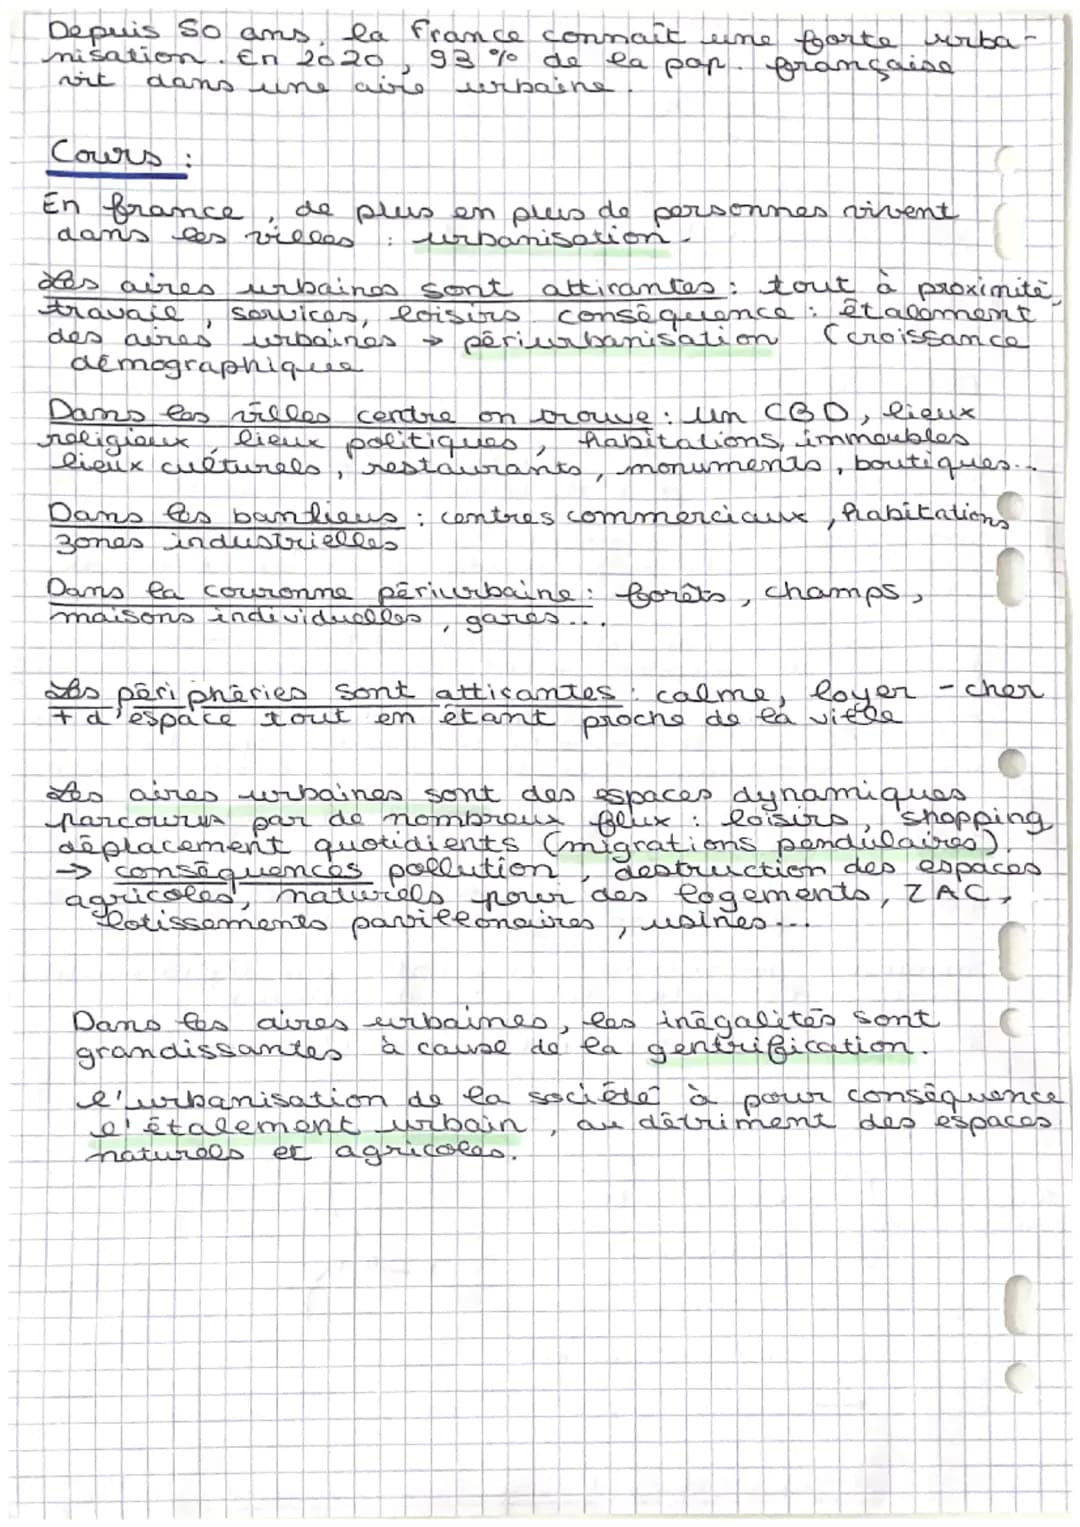 Depuis 50 ans, la France connaît une forte urba-
nisation. En 2020, 93 % de la pop. française
vit dans une aire urbaine.
Cours :
En france, de plus en plus de personnes vivent
dans les villes : urbanisation.
Les aires urbaines sont attirantes : tout à proximité,
travail, services, loisirs. conséquence : étalement
des aires urbaines → périurbanisation (croissance
démographique
Dans les villes centre on trouve : un CBD, lieux
religieux, lieux politiques, habitations, immeubles
lieux culturels, restaurants, monuments, boutiques...
Dans les banlieus : centres commerciaux, habitations
zones industrielles
Dans la couronne périurbaine : forêts, champs,
maisons individuelles, gares...
Les périphéries sont attirantes : calme, loyer - cher
+ d'espace tout en étant proche de la ville
Les aires urbaines sont des espaces dynamiques
parcourus par de nombreux flux : loisirs, shopping,
déplacement quotidients (migrations pendulaires).
→ conséquences pollution, destruction des espaces
agricoles, naturels pour des logements, ZAC,
lotissements pavillonaires, usines...
Dans les aires urbaines, les inégalités sont
grandissantes à cause de la gentrification.
l'urbanisation de la société à pour conséquence
l'étalement urbain, au détriment des espaces
naturels et agricoles.